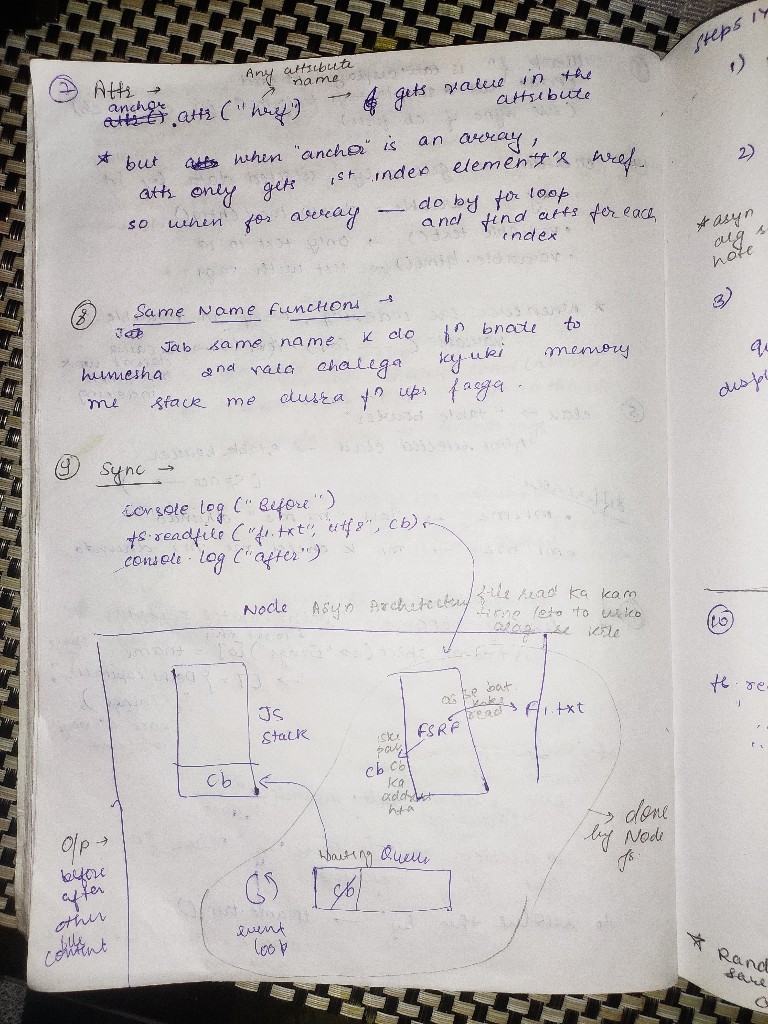 Any attribute
name
7 Attr →
anchor
attr().attr("href") → gets value in the
attribute
* but when "anchor" is an array,
attr only gets 1st index element's href.
so when for array — do by for loop
and find attr for each
index
8 Same Name Functions →
Jab same name k do fn bnate to
humesha 2nd vala chalega kyuki memory
me stack me dusra fn upr jaega.
9 Sync →
console log ("Before")
fs.readfile ("f1.txt", "utf8", cb)
console.log ("after")
Node Asyn Architectur
file read ka kam
time leta to usko
alag se krte
JS
Stack
Cb
os se bat
krke
read
FSRF
F1.txt
iske
pas
cb Cb
ka
address
hta
→ done
by Node
js.
Waiting Queue
cb
event
loop
O/p →
before
after
other
file
content
Steps
1)
2)
* asyn
alg
note
3)
displ
10
* Rand